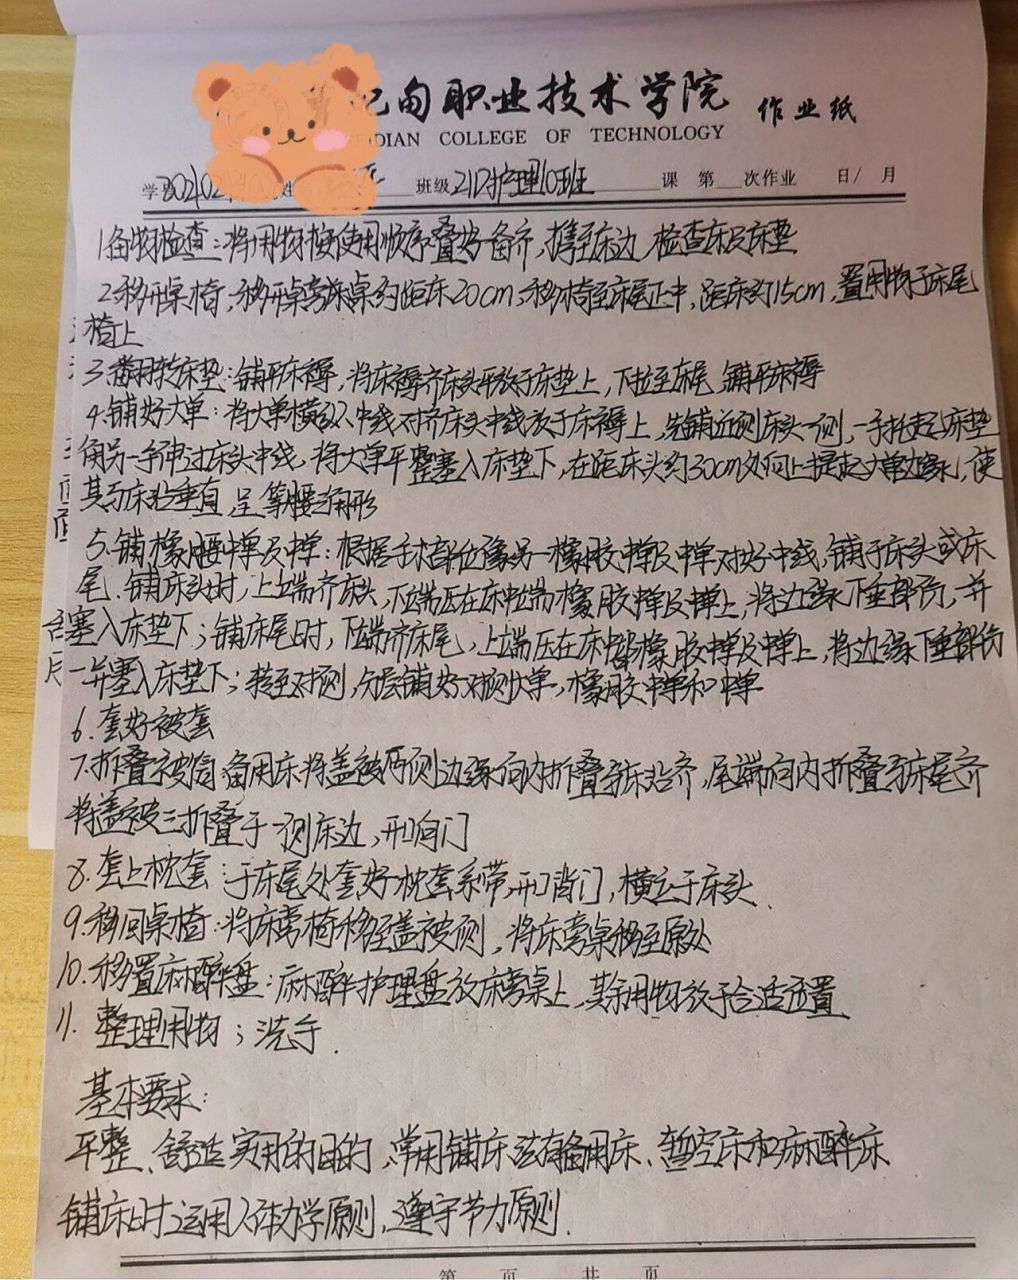 旬职业技术学院 作业纸
DIAN COLLEGE OF TECHNOLOGY
学 202102 班级 21口护理10班 课 第 次作业 日/ 月
1.备物检查:将用物按使用顺序叠好备齐,携至床边,检查床及床垫
2.移开桌椅:移开床旁桌约距床20cm,移椅至床尾正中,距床约15cm,置用物于床尾
椅上
3.翻转床垫:铺平床褥,将床褥齐床头平放于床垫上,下拉至床尾,铺平床褥
4.铺好大单:将大单横纵中线对齐床头中线放于床褥上,先铺近侧床头一侧,一手托起床垫
角另一手伸过床头中线,将大单平整塞入床垫下,在距床头约30cm处向上提起大单边缘,使
其与床沿垂直,呈等腰三角形
5.铺橡胶中单及中单:根据手术部位将另一橡胶中单及中单对好中线,铺于床头或床
尾.铺床头时,上端齐床头,下端压在床中端橡胶中单及中单上,将边缘下垂部分,一并
塞入床垫下;铺床尾时,下端齐床尾,上端压在床中部橡胶中单及中单上,将边缘下垂部分
一并塞入床垫下;转至对侧,分层铺好对侧大单,橡胶中单和中单
6.套好被套
7.折叠被筒:备用床将盖被两侧边缘向内折叠与床沿齐,尾端向内折叠与床尾齐
将盖被三折叠于一侧床边,开口向门
8.套上枕套:于床尾处套好枕套系带,开口背门,横立于床头.
9.移回桌椅:将床旁椅移至盖被侧,将床旁桌移至原处
10.移置麻醉盘:麻醉护理盘放床旁桌上,其余用物放于合适位置
11.整理用物;洗手.
基本要求:
平整、舒适实用的目的,常用铺床法有备用床、暂空床和麻醉床
铺床时运用人体力学原则,遵守节力原则.
第 页 共 页